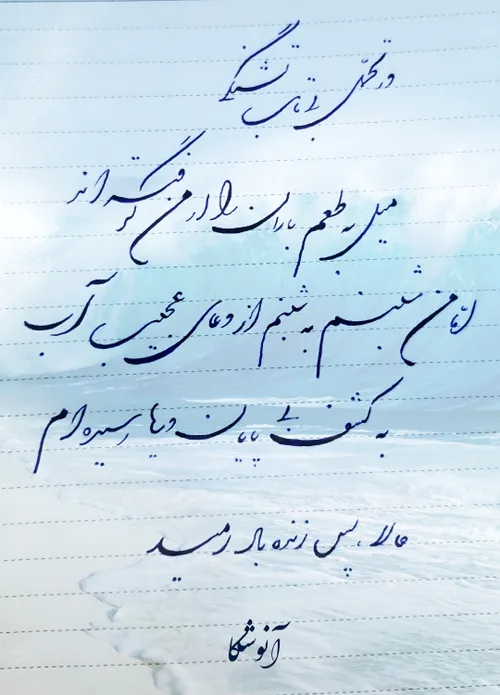 در تحمّل بی‌تاب تشنگی
میل به طعم باران را از من گرفته‌اند
امّا من شبنم به شبنم از دعای عجیب آب
به کشف بی‌پایان دریا رسیده‌ام
حالا پس زنده باد امید
آنوشکا